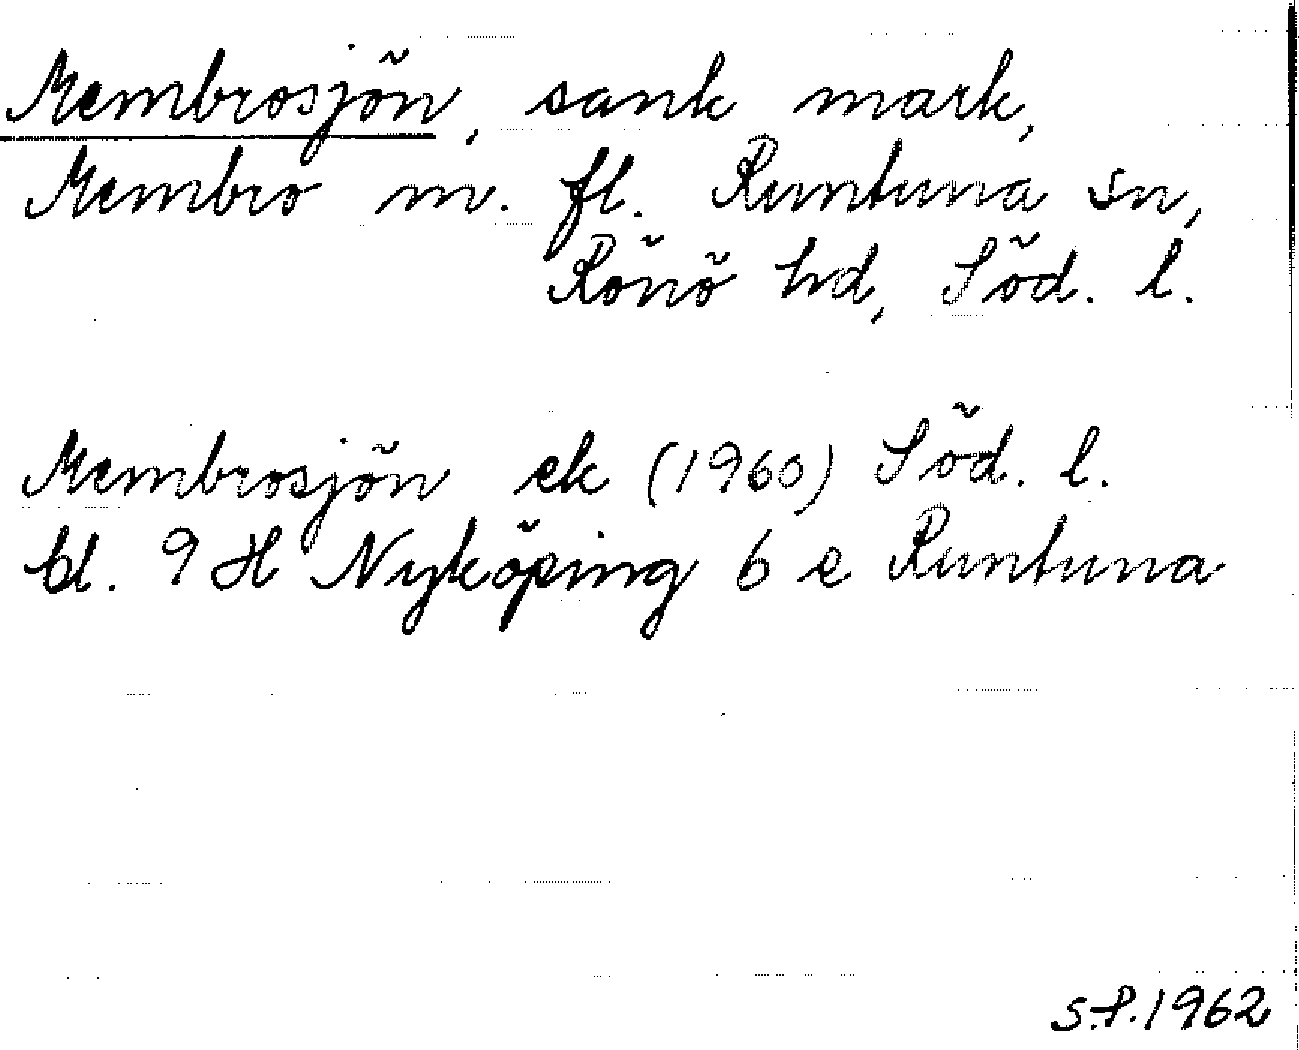 Membrosjön, sank mark,
Membro m. fl. Runtuna sn,
Rönö hd, Söd. l.
Membrosjön ek (1960) Söd. l.
bl. 9 H Nyköping 6 e Runtuna
S.P. 1962